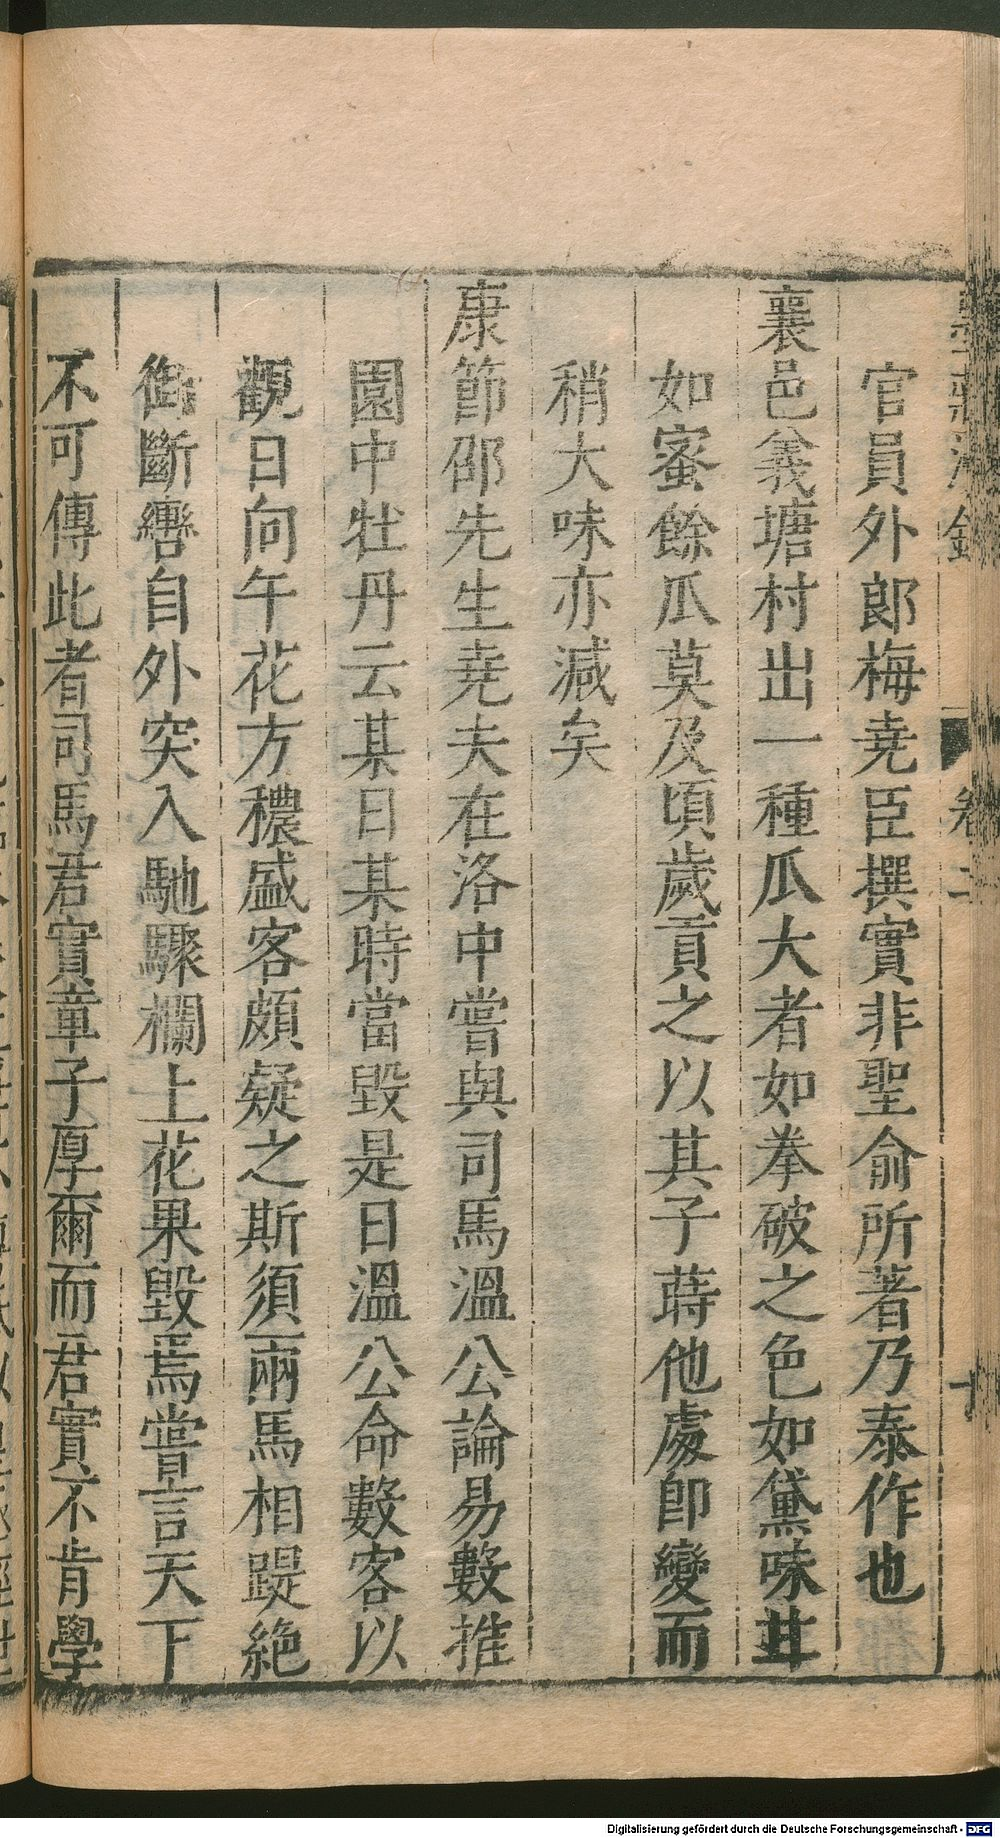 官員外郎梅堯臣撰實非聖俞所著乃泰作也
襄邑義塘村出一種瓜大者如拳破之色如黛味甘
如蜜餘瓜莫及頃歲貢之以其子蒔他處即變而
稍大味亦減矣
康節邵先生堯夫在洛中嘗與司馬溫公論易數推
園中牡丹云某日某時當毀是日溫公命數客以
觀日向午花方穠盛客頗疑之斯須兩馬相踶絶
銜斷轡自外突入馳驟欄上花果毀焉嘗言天下
不可傳此者司馬君實章子厚爾而君實不肯學
卷二
十
Digitalisierung gefördert durch die Deutsche Forschungsgemeinschaft - DFG